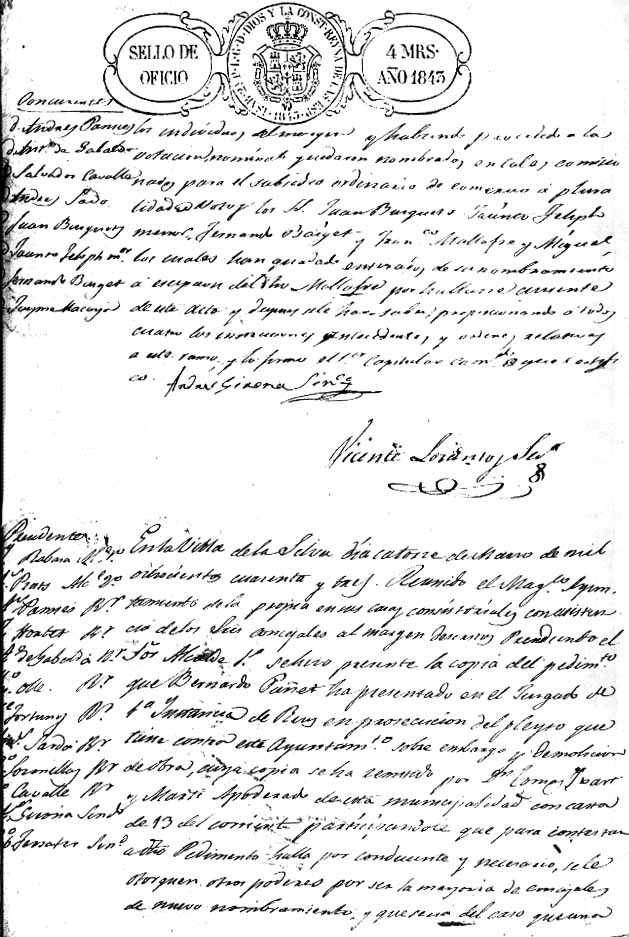 SELLO DE OFICIO
ISAB. 2ª P. L. G. D. DIOS Y LA CONST. REYNA DE LAS ESP. 1843
4 MRS. AÑO 1843
Concurentes
d. Andres Pamies
d. Antº de Gabaldá
d. Salvador Cavallé
d. Andres Sardo
d. Juan Barguets
d. Jaume Jeleph mor
Fernando Barget
Jayme Macaya
los individuos al margen y habiendo procedido a la
votacion nominal quedaron nombrados en cales comicio
nados para el subsidio ordinario de comercio á plura
lidad de votos los SS. Juan Barguets Jaume Jeleph
menor, Fernando Barget y Franco Mallafré y Miguel
los cuales han quedado enterados de su nombramiento
á escepcion del dho Mallafré por hallarse ausente
de este acto y despues se le hará saber, proporcionando á todos
cuatro los instrucciones antecedentes y ordenes relativas
a este ramo, y lo firmo el Sr Capitular
co.
Andres Girona Sinco
Vicente Lorenzo Srio
Precidente
Rabasa Ale 1º
Prats Ale 2º
Pamies Rr
Hortet Rr
de Gabaldá Rr
olle. Rr
Fortuny Rr
Sardá Rr
Sormellas Rr
Cavalle Rr
Girona Sindo
Ferrater Sino
En la Villa de la Selva dia catorce de Marzo de mil
ochocientos cuarenta y tres. Reunido el Magco Ayun-
tamiento de la propia en sus casas consistoriales con asisten
cia de los SSres concejales al margen descritos Precidiendo el
Sor Alcalde 1º se hizo presente la copia del pedimto
que Bernardo Puñet ha presentado en el Jusgado de
1ª Instancia de Reus en prosecucion del pleyto que
tiene contra este Ayuntamto sobre embargo y demolicion
de obra, cuya copia se ha remitado por Dn Tomas Yxart
y Marti Apoderado de esta municipalidad con carta
de 13 del corriente participandole que para contestar
a dho Pedimento halla por conducente y necesario, se le
otorguen otros poderes por ser la mayoria de concejales
de nuevo nombramiento, y que seria del caso que una